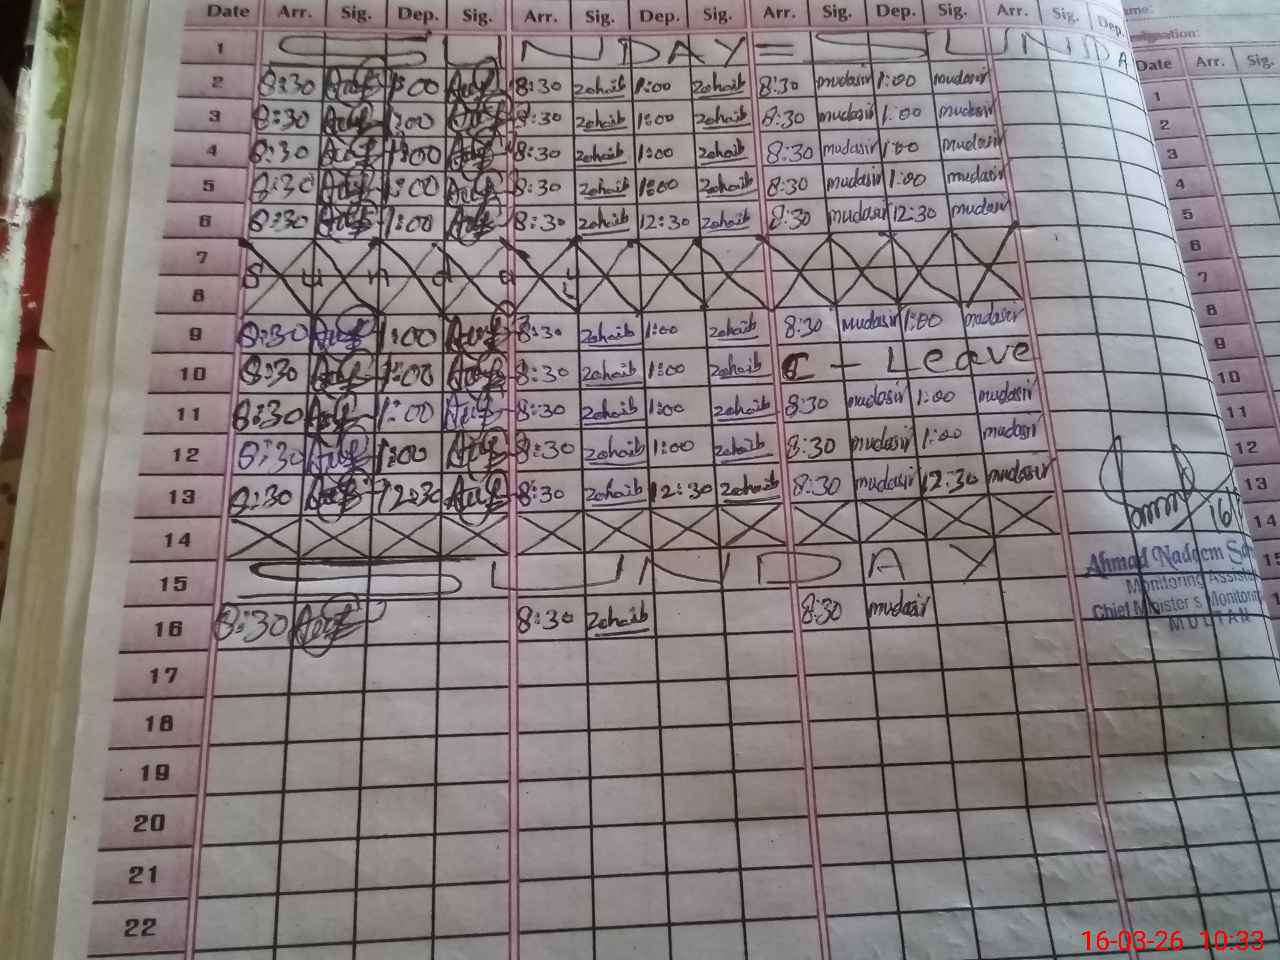 Date Arr. Sig. Dep. Sig. Arr. Sig. Dep. Sig. Arr. Sig. Dep. Sig. Arr. Sig. Dep.
1 SUNDAY = SUNDA
2 8:30 1:00 8:30 zohaib 1:00 zohaib 8:30 mudasir 1:00 mudasir
3 8:30 1:00 8:30 zohaib 1:00 zohaib 8:30 mudasir 1:00 mudasir
4 8:30 1:00 8:30 zohaib 1:00 zohaib 8:30 mudasir 1:00 mudasir
5 8:30 1:00 8:30 zohaib 1:00 zohaib 8:30 mudasir 1:00 mudasir
6 8:30 1:00 8:30 zohaib 12:30 zohaib 8:30 mudasir 12:30 mudasir
7
8 S u n d a y
9 8:30 1:00 8:30 zohaib 1:00 zohaib 8:30 mudasir 1:00 mudasir
10 8:30 1:00 8:30 zohaib 1:00 zohaib C - Leave
11 8:30 1:00 8:30 zohaib 1:00 zohaib 8:30 mudasir 1:00 mudasir
12 8:30 1:00 8:30 zohaib 1:00 zohaib 8:30 mudasir 1:00 mudasir
13 8:30 12:30 8:30 zohaib 12:30 zohaib 8:30 mudasir 12:30 mudasir
14
15 SUNDAY
16 8:30 8:30 zohaib 8:30 mudasir
17
18
19
20
21
22
Ahmad Nadeem
Monitoring
Chief Minister's
MULTAN
Date Arr. Sig.
1
2
3
4
5
6
7
8
9
10
11
12
13
14
16-03-26 10:33